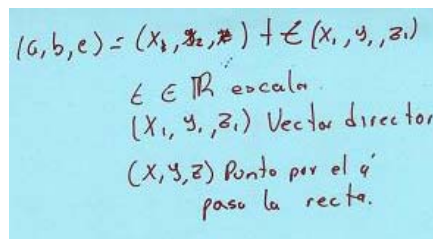 (a,b,c) = (x₁, y₂, z) + t (x₁, y₁, z₁)
t ∈ ℝ escala
(x₁, y₁, z₁) Vector director
(x,y,z) Punto por el q'
pasa la recta.